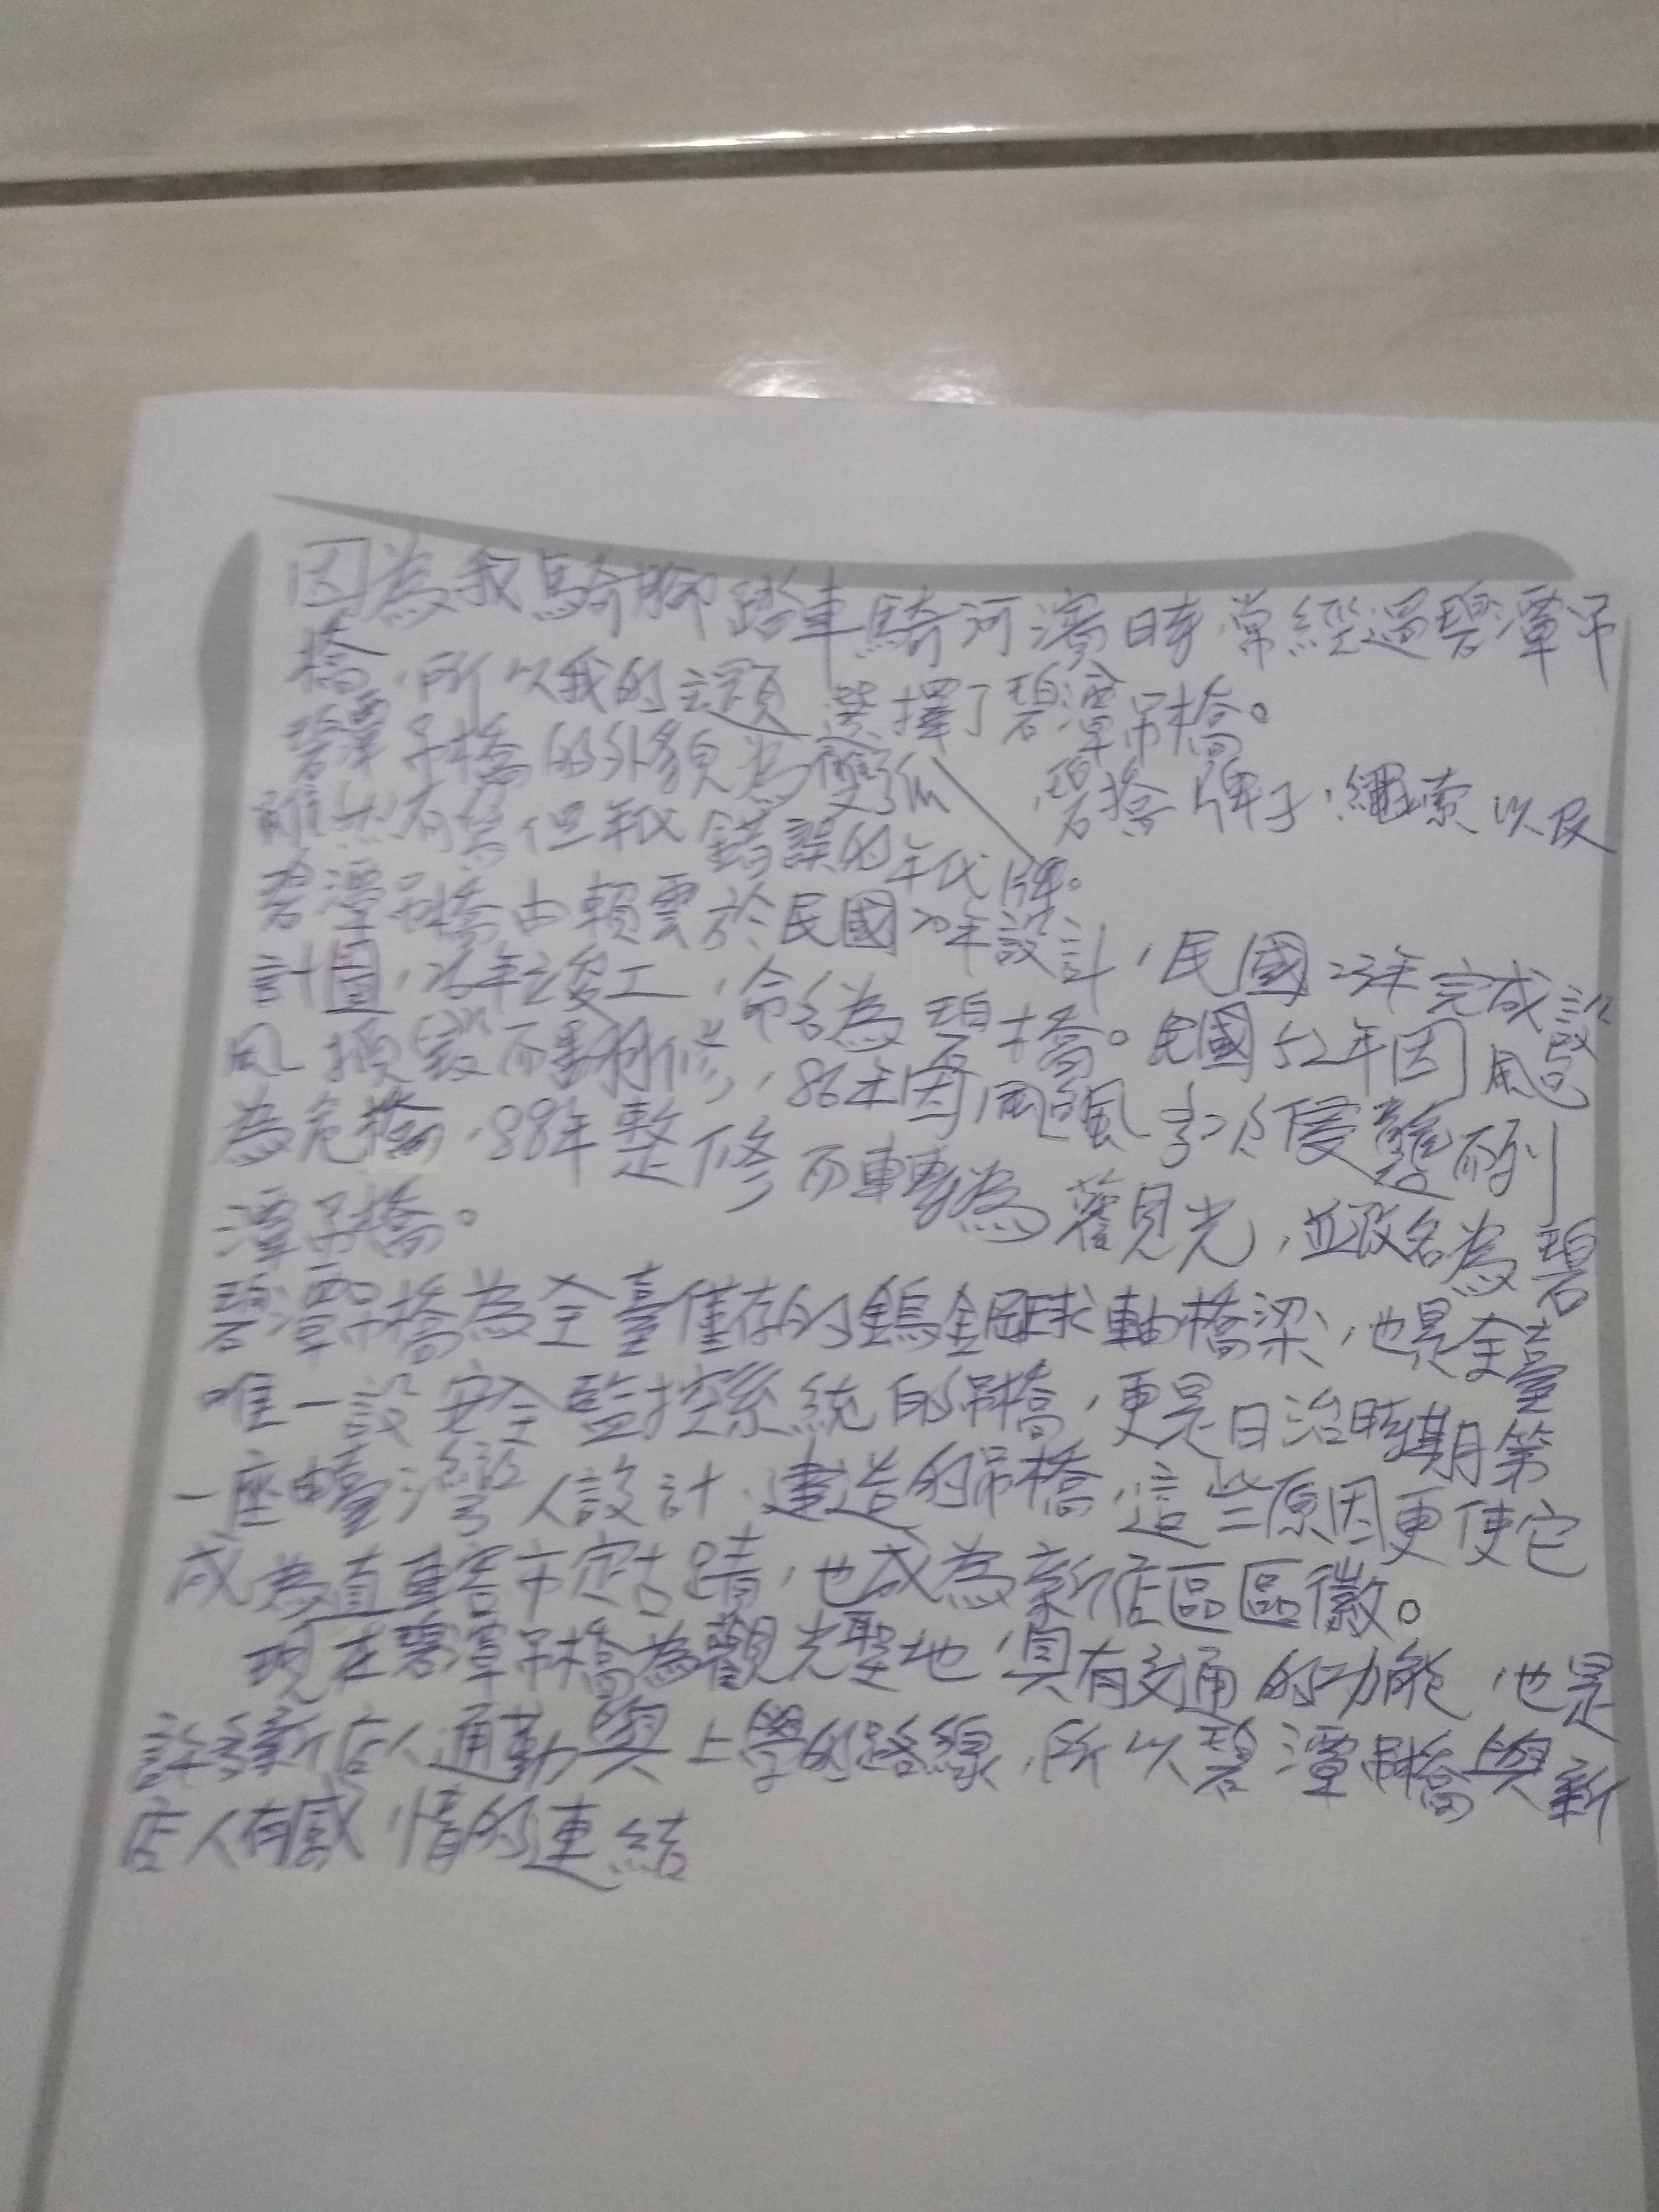 因為我騎腳踏車騎河濱時,常經過碧潭吊
橋,所以我的主題選擇了碧潭吊橋。
碧潭吊橋的外貌為雙弧 碧橋牌子,繩索以及
雖然有舊但 錯誤的年代牌。
碧潭吊橋由賴雲於民國20年設計,民國23年完成設
計圖,26年竣工,命名為碧橋。民國52年因颱
風損毀而翻修,86年因颱風多次侵襲而列
為危橋,88年整修而轉為 觀光,並改名為碧
潭吊橋。
碧潭吊橋為全臺僅存的鎢金鋼球軸橋梁,也是全臺
唯一設安全監控系統的吊橋,更是日治時期第
一座由臺灣人設計、建造的吊橋,這些原因更使它
成為直轄市定古蹟,也成為新店區區徽。
現在碧潭吊橋為觀光聖地,具有交通的功能,也是
許多新店人通勤與上學的路線,所以碧潭吊橋與新
店人有感情的連結